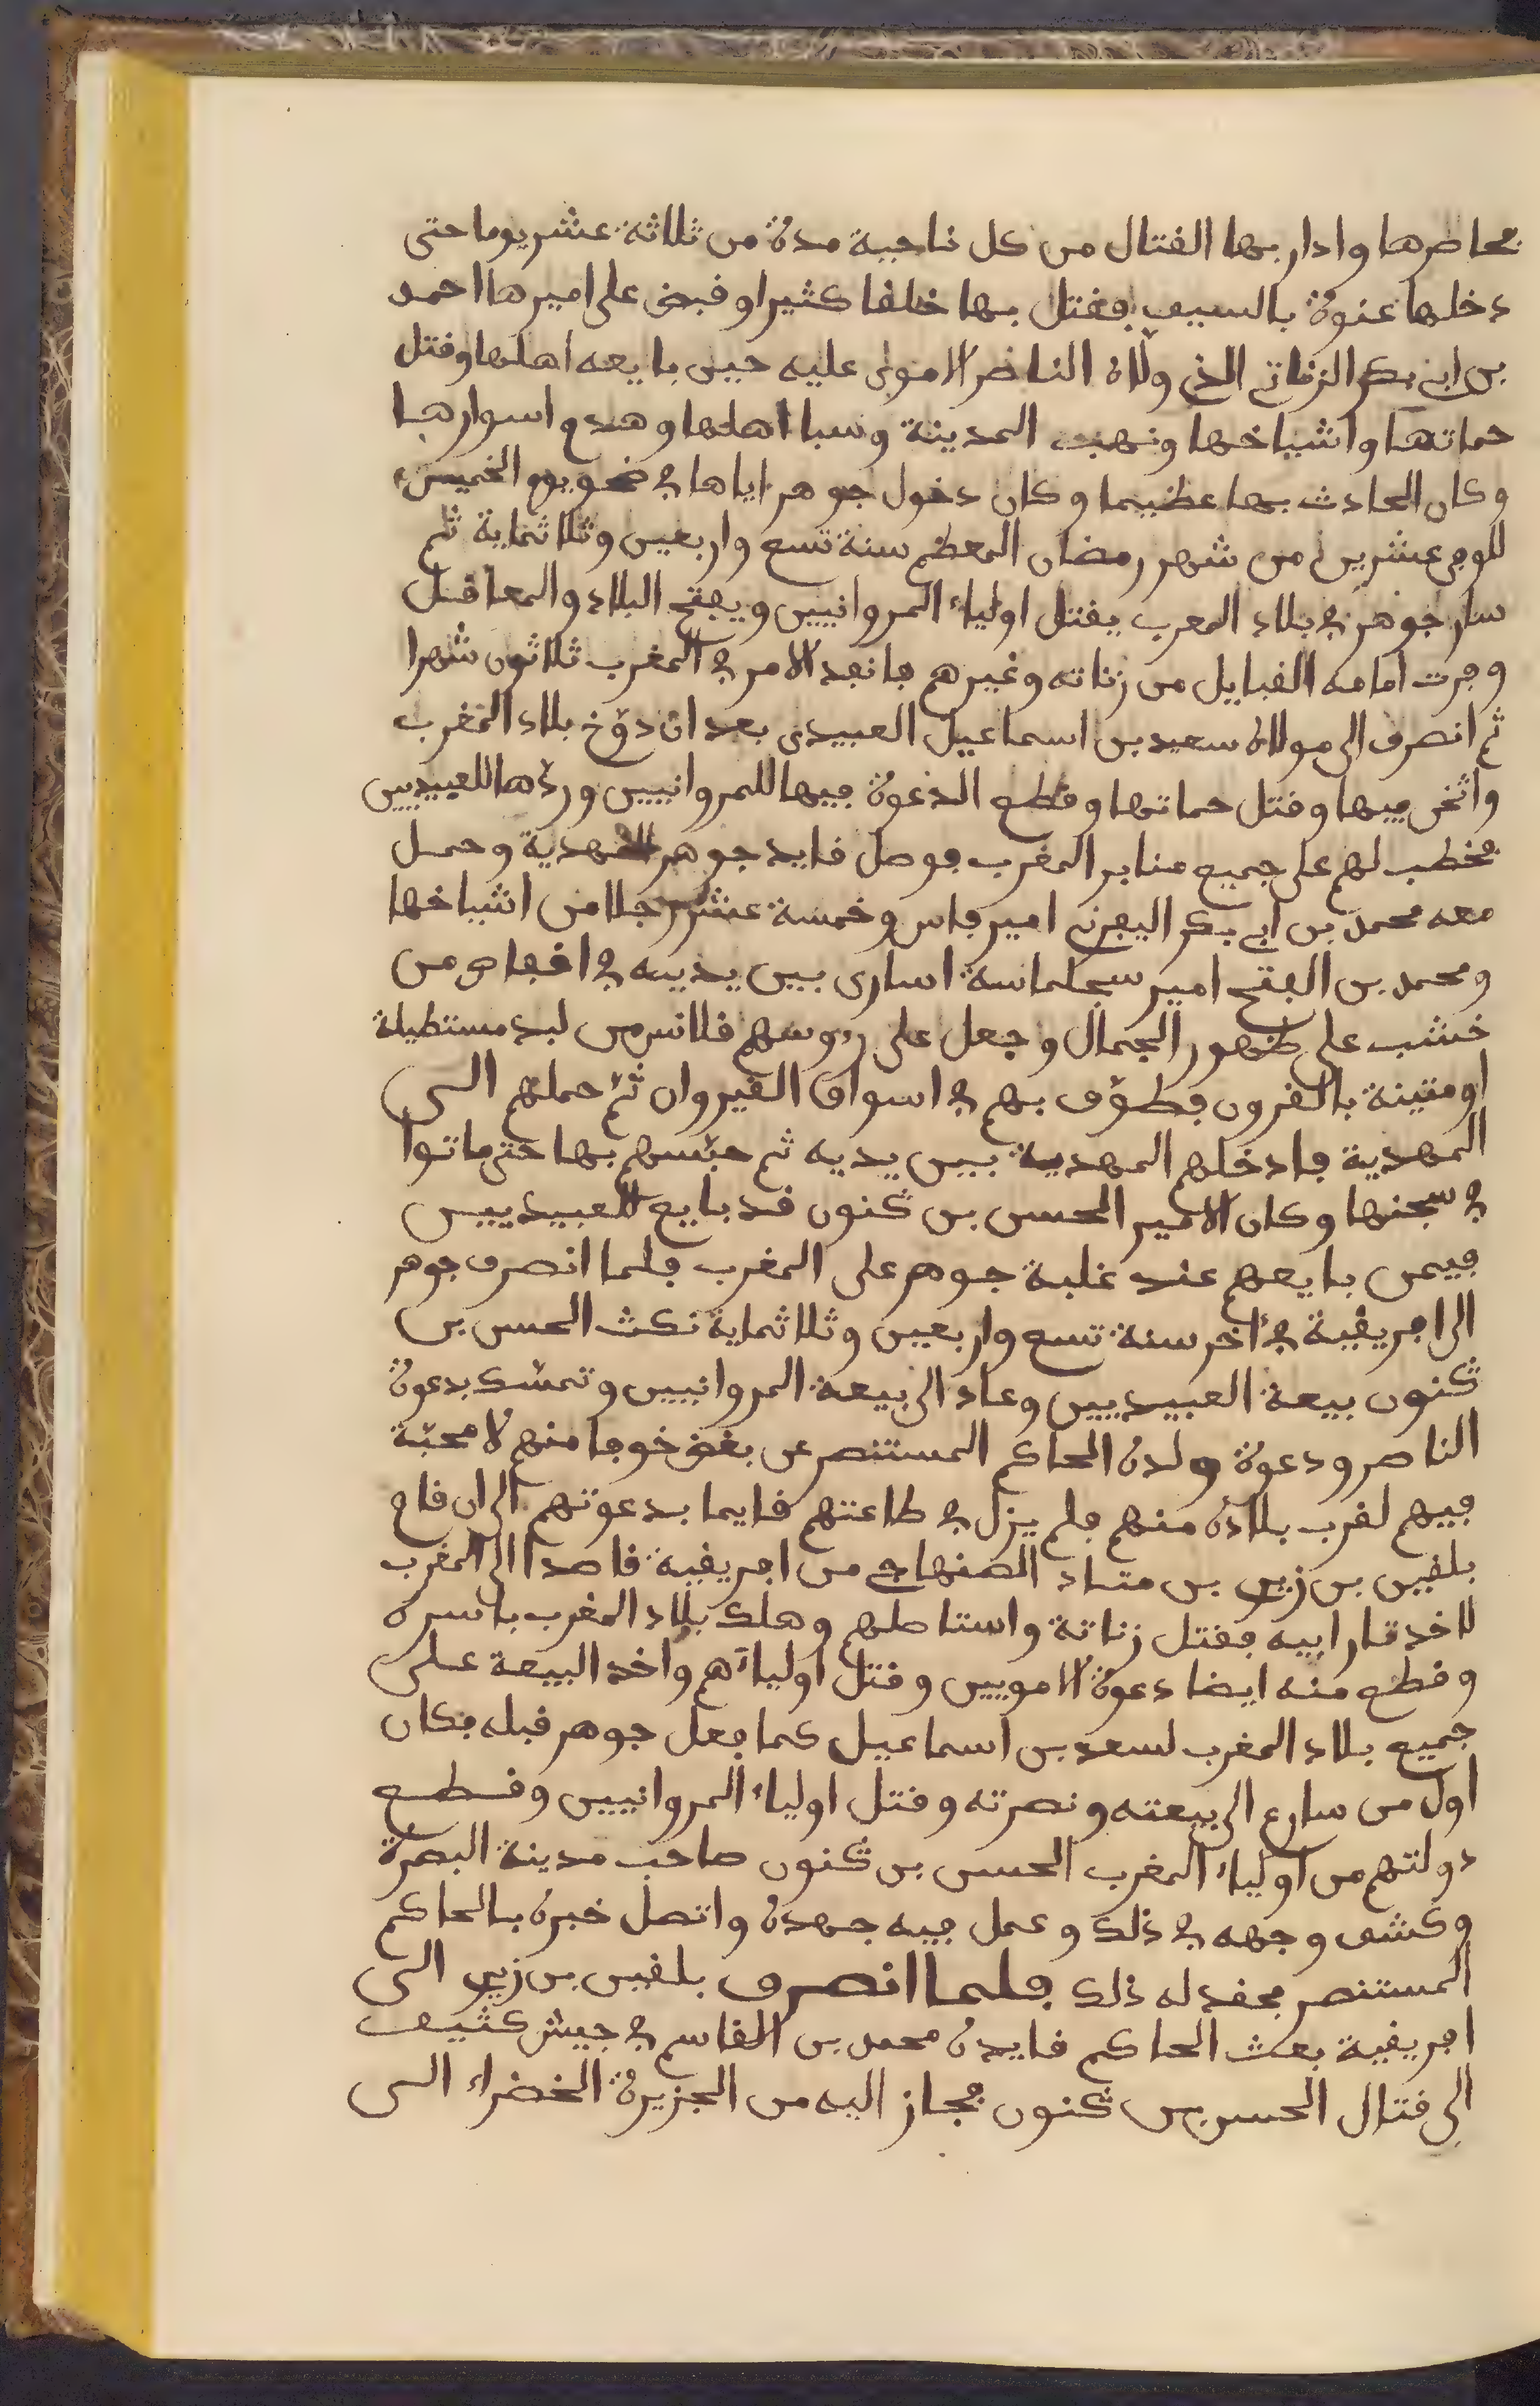 فحاصرها وادار بها القتال من كل ناحية مدة من ثلاثة عشر يوما حتى
دخلها عنوة بالسيف فقتل بها خلقا كثيرا وقبض على اميرها احمد
بن ابي بكر الزناتي الذي ولاه الناصر الاموي عليه حين بايعه اهلها وقتل
حماتها واشياخها ونهب المدينة وسبا اهلها وهدم اسوارها
وكان الحادث بها عظيما وكان دخول جوهر اياها في ضحو يوم الخميس
الموفى عشرين من شهر رمضان المعظم سنة تسع واربعين وثلاثماية ثم
سار جوهر في بلاد المغرب يقتل اولياء المروانيين ويفتح البلاد والمعاقل
وفرت امامه القبايل من زناته وغيرهم فانفد الامر في المغرب ثلاثون شهرا
ثم انصرف الى مولاه سعيد بن اسماعيل العبيدي بعد ان دوّخ بلاد المغرب
واثخن فيها وقتل حماتها وقطع الدعوة فيها للمروانيين وردّها للعبيديين
فخطب لهم على جميع منابر المغرب فوصل قايد جوهر المهدية وحمل
معه محمد بن ابي بكر اليفرني امير فاس وخمسة عشر رجلا من اشياخها
ومحمد بن الفتح امير سجلماسة اسارى بين يديه في اقفاص من
خشب على ظهور الجمال وجعل على رءوسهم قلانس من لبد مستطيلة
او متينة بالقرون فطوّف بهم في اسواق القيروان ثمّ حملهم الى
المهدية فادخلهم المهدية بين يديه ثم حبّسهم بها حتى ماتوا
في سجنها وكان الامير الحسن بن كنون قد بايع للعبيديين
فيمن بايعهم عند غلبة جوهر على المغرب فلما انصرف جوهر
الى افريقية في آخر سنة تسع واربعين وثلاثماية نكث الحسن بن
كنون بيعة العبيديين وعاد الى بيعة المروانيين وتمسّك بدعوة
الناصر ودعوة ولده الحاكم المستنصر عن بغض خوفا منهم لا محبّة
فيهم لقرب بلاده منهم فلم يزل في طاعتهم قايما بدعوتهم الى ان قام
بلقين بن زيري بن مناد الصنهاجي من افريقية قاصدا الى المغرب
لاخد ثار ابيه فقتل زناتة واستاصلهم وملك بلاد المغرب باسره
وقطع منه ايضا دعوة الامويين وقتل اولياءهم واخد البيعة على
جميع بلاد المغرب لسعد بن اسماعيل كما فعل جوهر قبله فكان
اول من سارع الى بيعته ونصرته وقتل اولياء المروانيين وقطع
دولتهم من اولياء المغرب الحسن بن كنون صاحب مدينة البصرة
وكشف وجهه في ذلك وعمل فيه جهده واتصل خبره بالحاكم
المستنصر فحقد له ذلك فلما انصرف بلقين بن زيري الى
افريقية بعث الحاكم قايده محمد بن القاسم في جيش كثيف
الى قتال الحسن بن كنون فجاز اليه من الجزيرة الخضراء الى